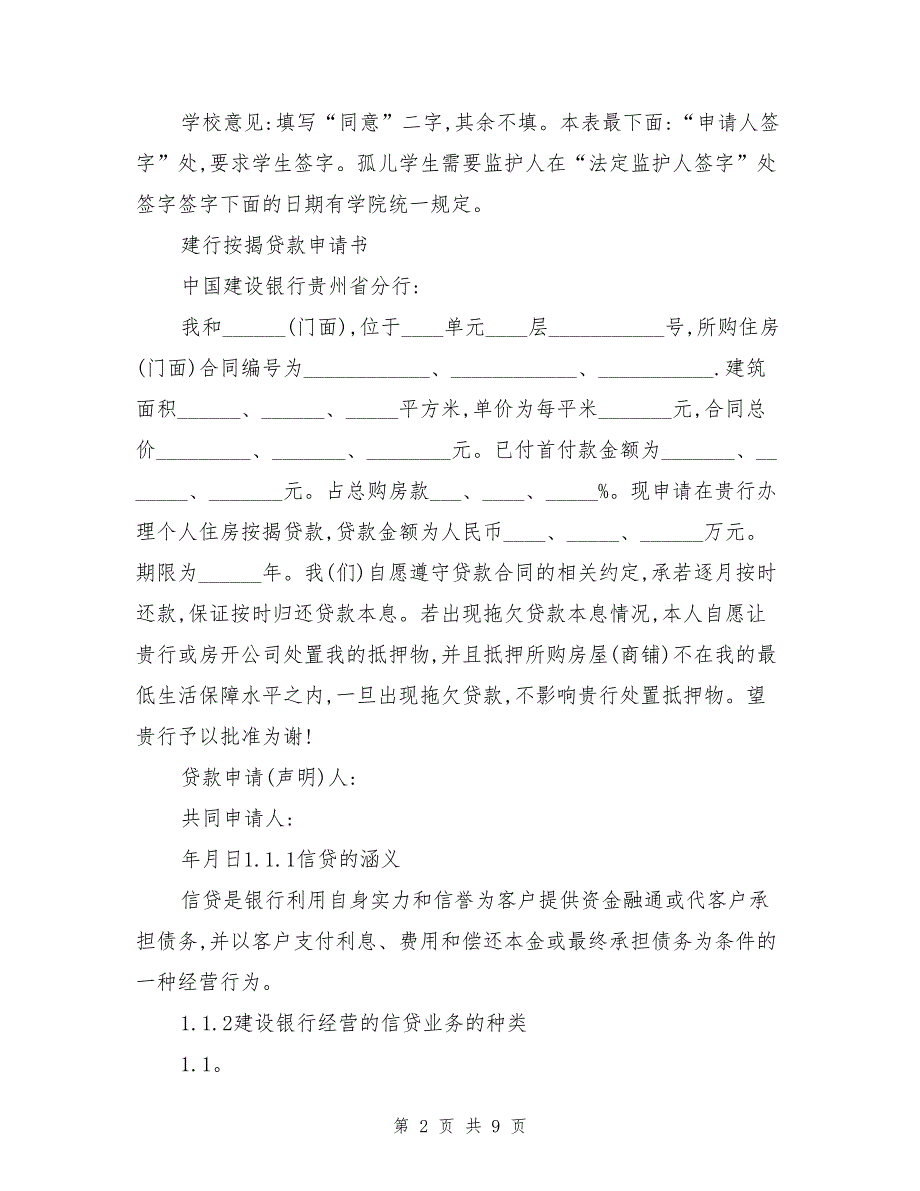 学校意见:填写“同意”二字,其余不填。本表最下面:“申请人签
字”处,要求学生签字。孤儿学生需要监护人在“法定监护人签字”处
签字签字下面的日期有学院统一规定。
建行按揭贷款申请书
中国建设银行贵州省分行:
我和______(门面),位于____单元____层___________号,所购住房
(门面)合同编号为____________、____________、___________.建筑
面积______、______、_____平方米,单价为每平米_______元,合同总
价_________、_______、________元。已付首付款金额为_______、__
_____、_______元。占总购房款___、____、_____%。现申请在贵行办
理个人住房按揭贷款,贷款金额为人民币____、_____、______万元。
期限为______年。我(们)自愿遵守贷款合同的相关约定,承若逐月按时
还款,保证按时归还贷款本息。若出现拖欠贷款本息情况,本人自愿让
贵行或房开公司处置我的抵押物,并且抵押所购房屋(商铺)不在我的最
低生活保障水平之内,一旦出现拖欠贷款,不影响贵行处置抵押物。望
贵行予以批准为谢!
贷款申请(声明)人:
共同申请人:
年月日1.1.1信贷的涵义
信贷是银行利用自身实力和信誉为客户提供资金融通或代客户承
担债务,并以客户支付利息、费用和偿还本金或最终承担债务为条件的
一种经营行为。
1.1.2建设银行经营的信贷业务的种类
1.1。
第 2 页 共 9 页